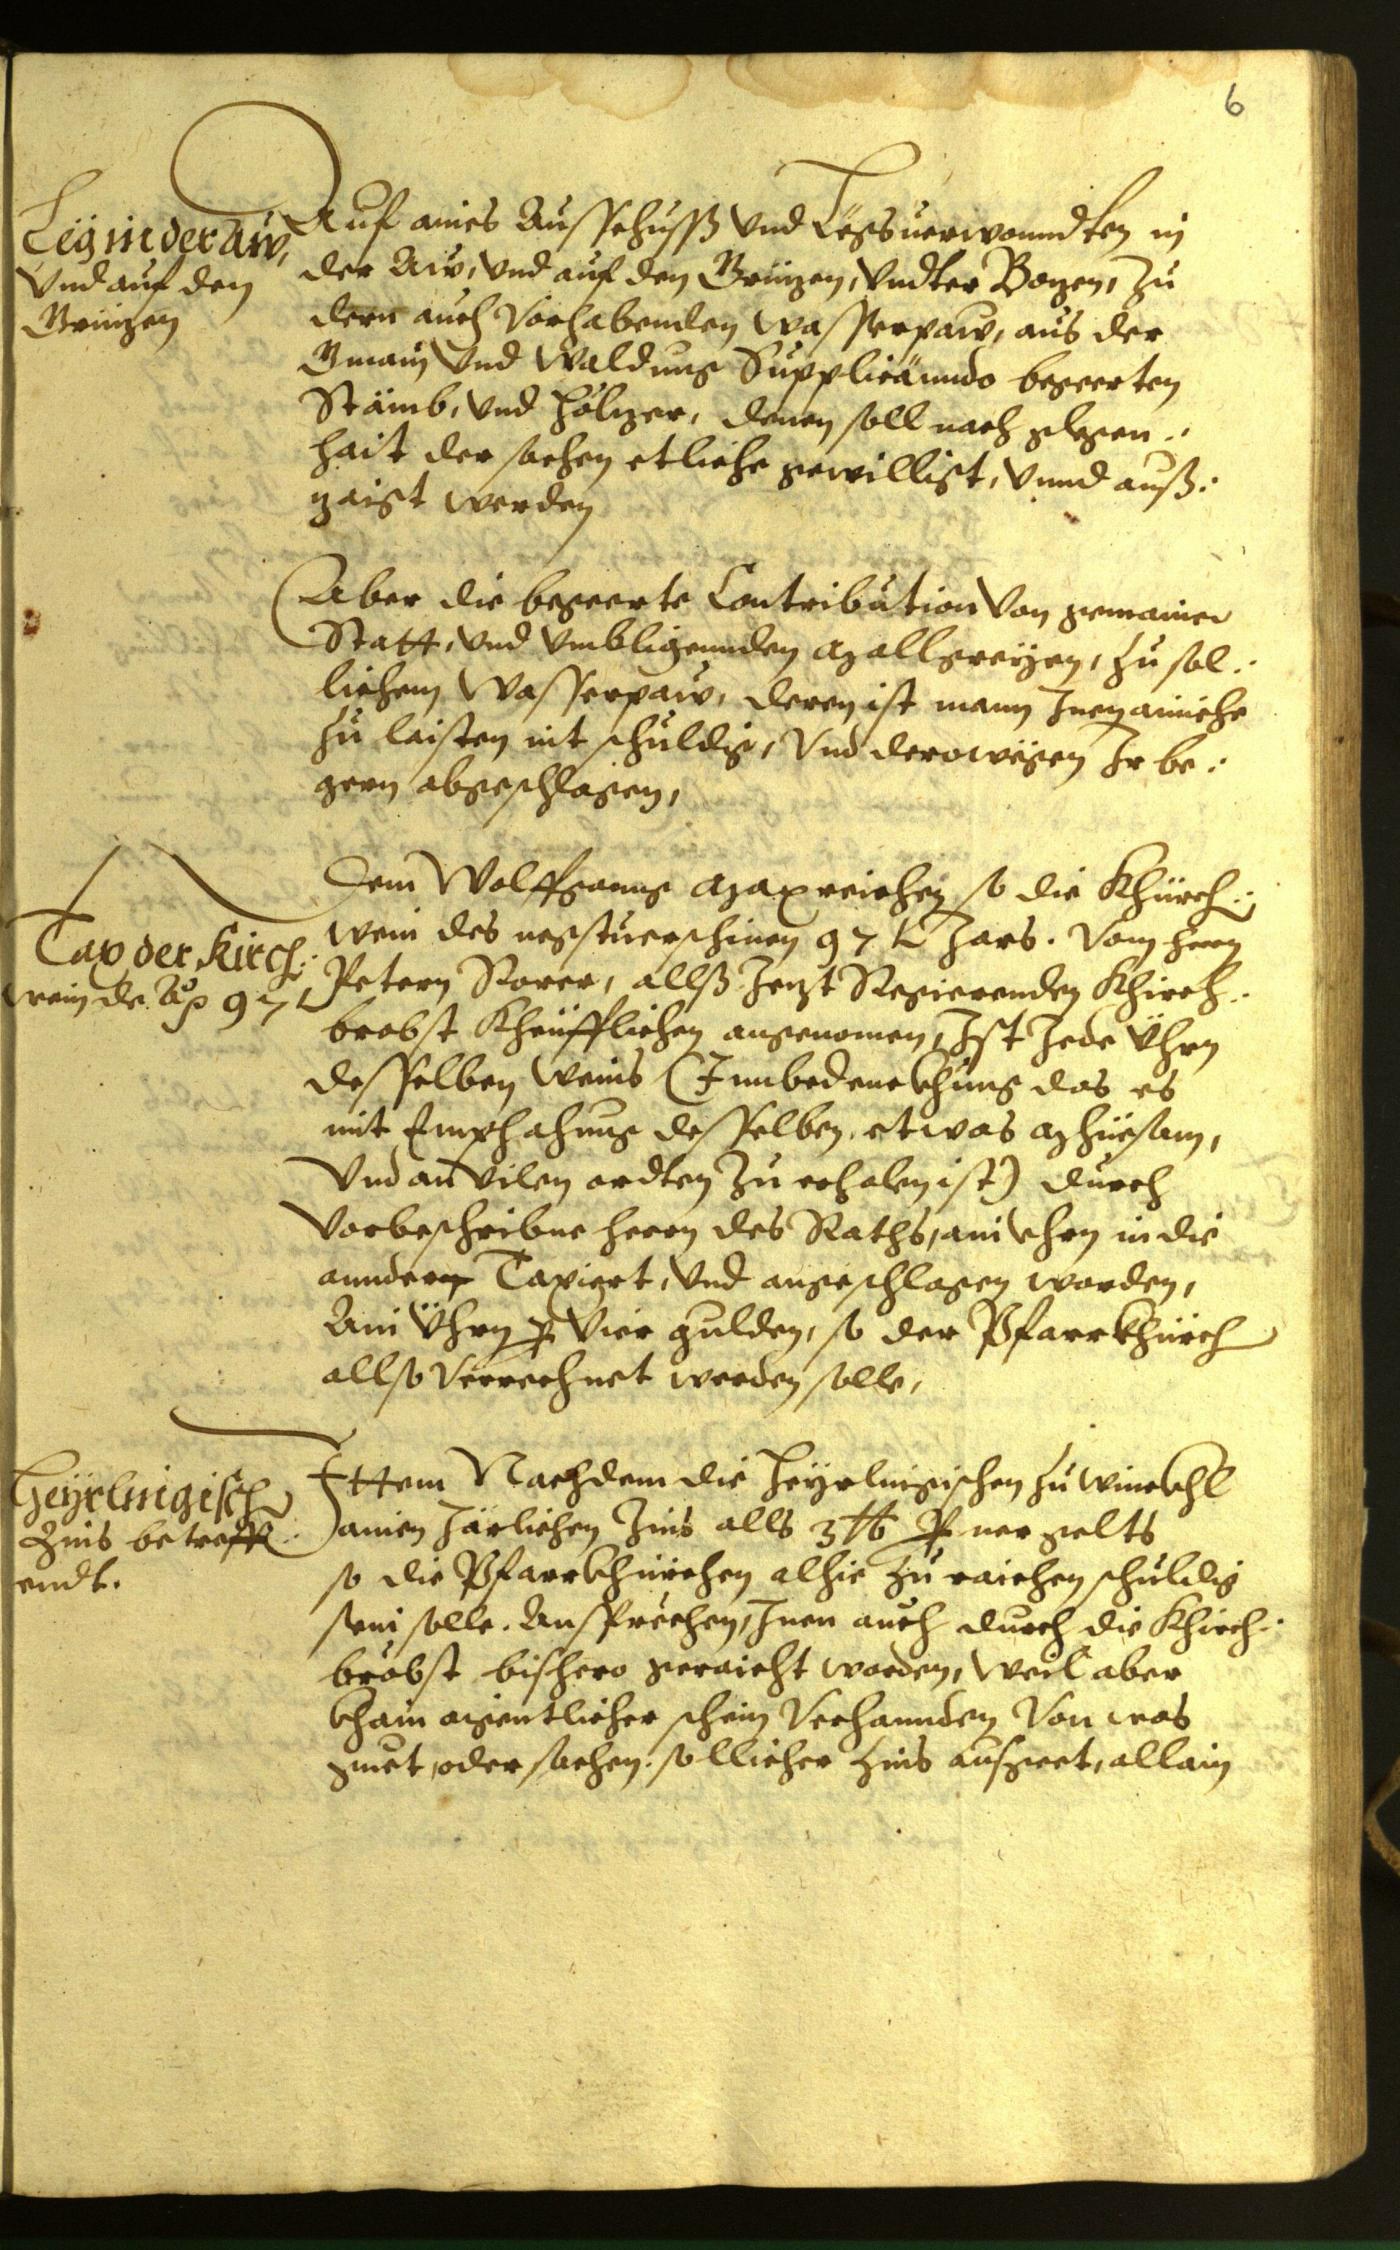 6
Leg in der Aw,
Vnd auf den
Grüzen
Auf aines Ausschuss vnd Legsuerwonndten in
der Aw, vnd auf den Grüzen, vndter Bozen, zu
dern auch vorhabenden wasserpaw, aus der
Gmain vnd Waldung Supplicänndo begerten
Stämb, vnd Hölzer, denen soll nach glegen:
hait der sachen etliche gewilligt, vnnd auß:
zaigt werden
Aber die begeerte Contribution von gemainer
Statt, vnd vmbligennden Malgreyen, zu sol:
lichem Wasserpaw, deren ist mann Inen ainiche
zu laisten nit schuldig, vnd derowegen Ir be:
gern abgeschlagen,
Tax der Kirch:
wein de Aõ 97
Dem Wolffganng Maxreichen so die Khürch:
wein des negstuerschinen 97 Jars. vom herrn
Petern Rorer, allß Jezt Regierenden Khirch:
brobst Kheüfflichen angenomen, Ist Jede Ÿhrn
desselben Weins (Innbedenckhung das es
mit Emphahung desselben, etwas Mhüesam,
vnd an vilen ordten zu erholen ist) durch
vorbeschribne herrn des Raths, ain Ÿhrn in die
annder Taxiert, vnd angeschlagen worden,
Ain Ÿhrn p vier gulden, so der Pfarrkhürch
allso verrechnet werden solle,
Heyrlingisch
Zins betreff:
endt.
Ittem Nachdem die Heyrlingischen zu Winckhl
ainen Järlichen Zins alls 3 lb perner gelts
so die Pfarrkhürchen alhie zu raichen schuldig
sein solle. Ansprechen, Inen auch durch die Khirch:
bröbst bisshero geraicht worden, weil aber
khain aigentlicher schein verhannden von was
guet, oder sachen sollicher Zins ausgeet, allain